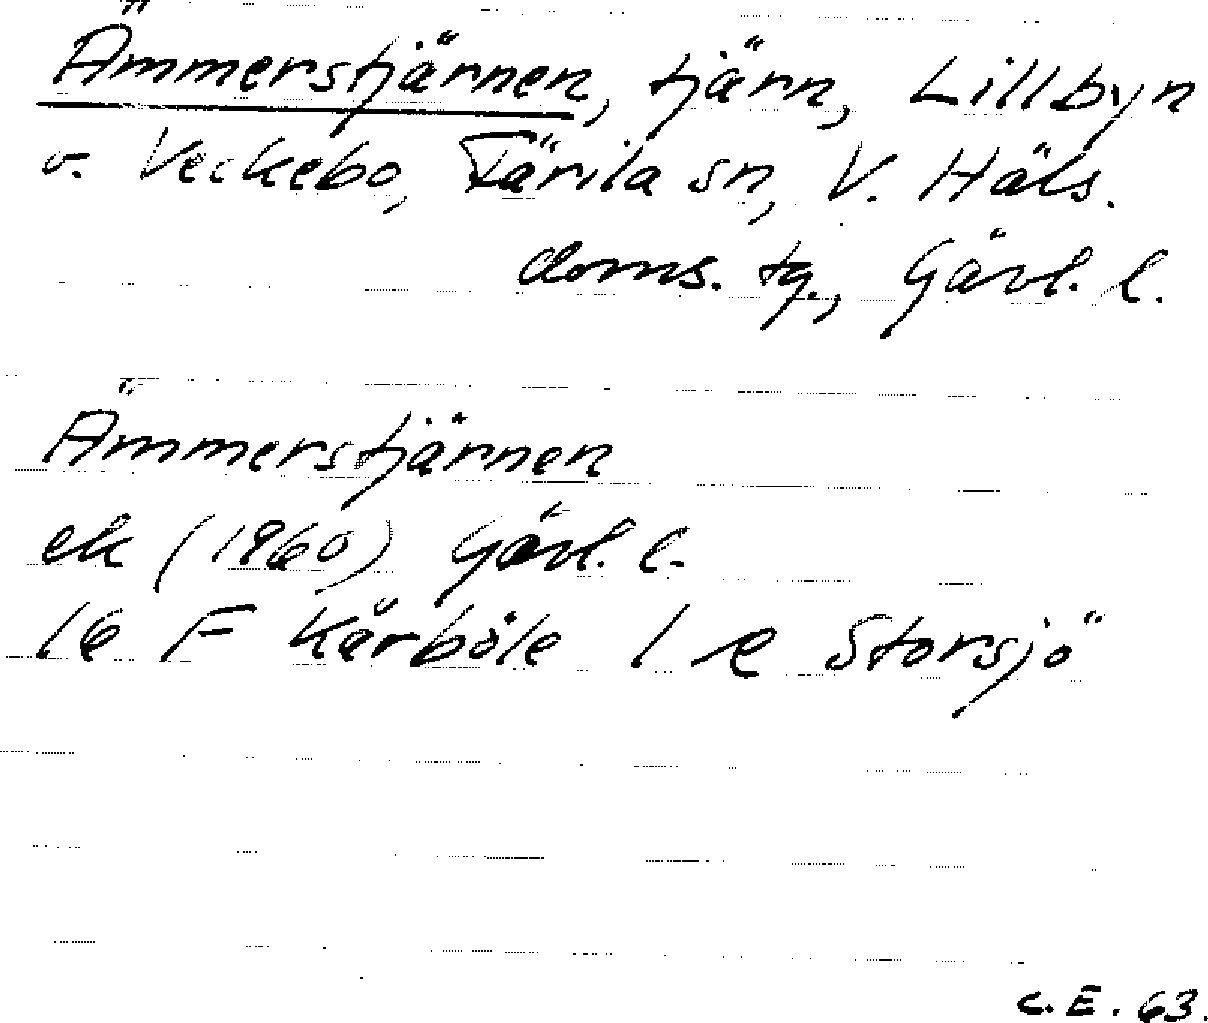 Ämmerstjärnen, tjärn, Lillbyn
v. Veckebo, Färila sn, V. Häls.
doms. tg., Gävl. l.
Ämmerstjärnen
ek (1960) Gävl. l.
16 F Kårböle 1 e Storsjö
C.E. 63.